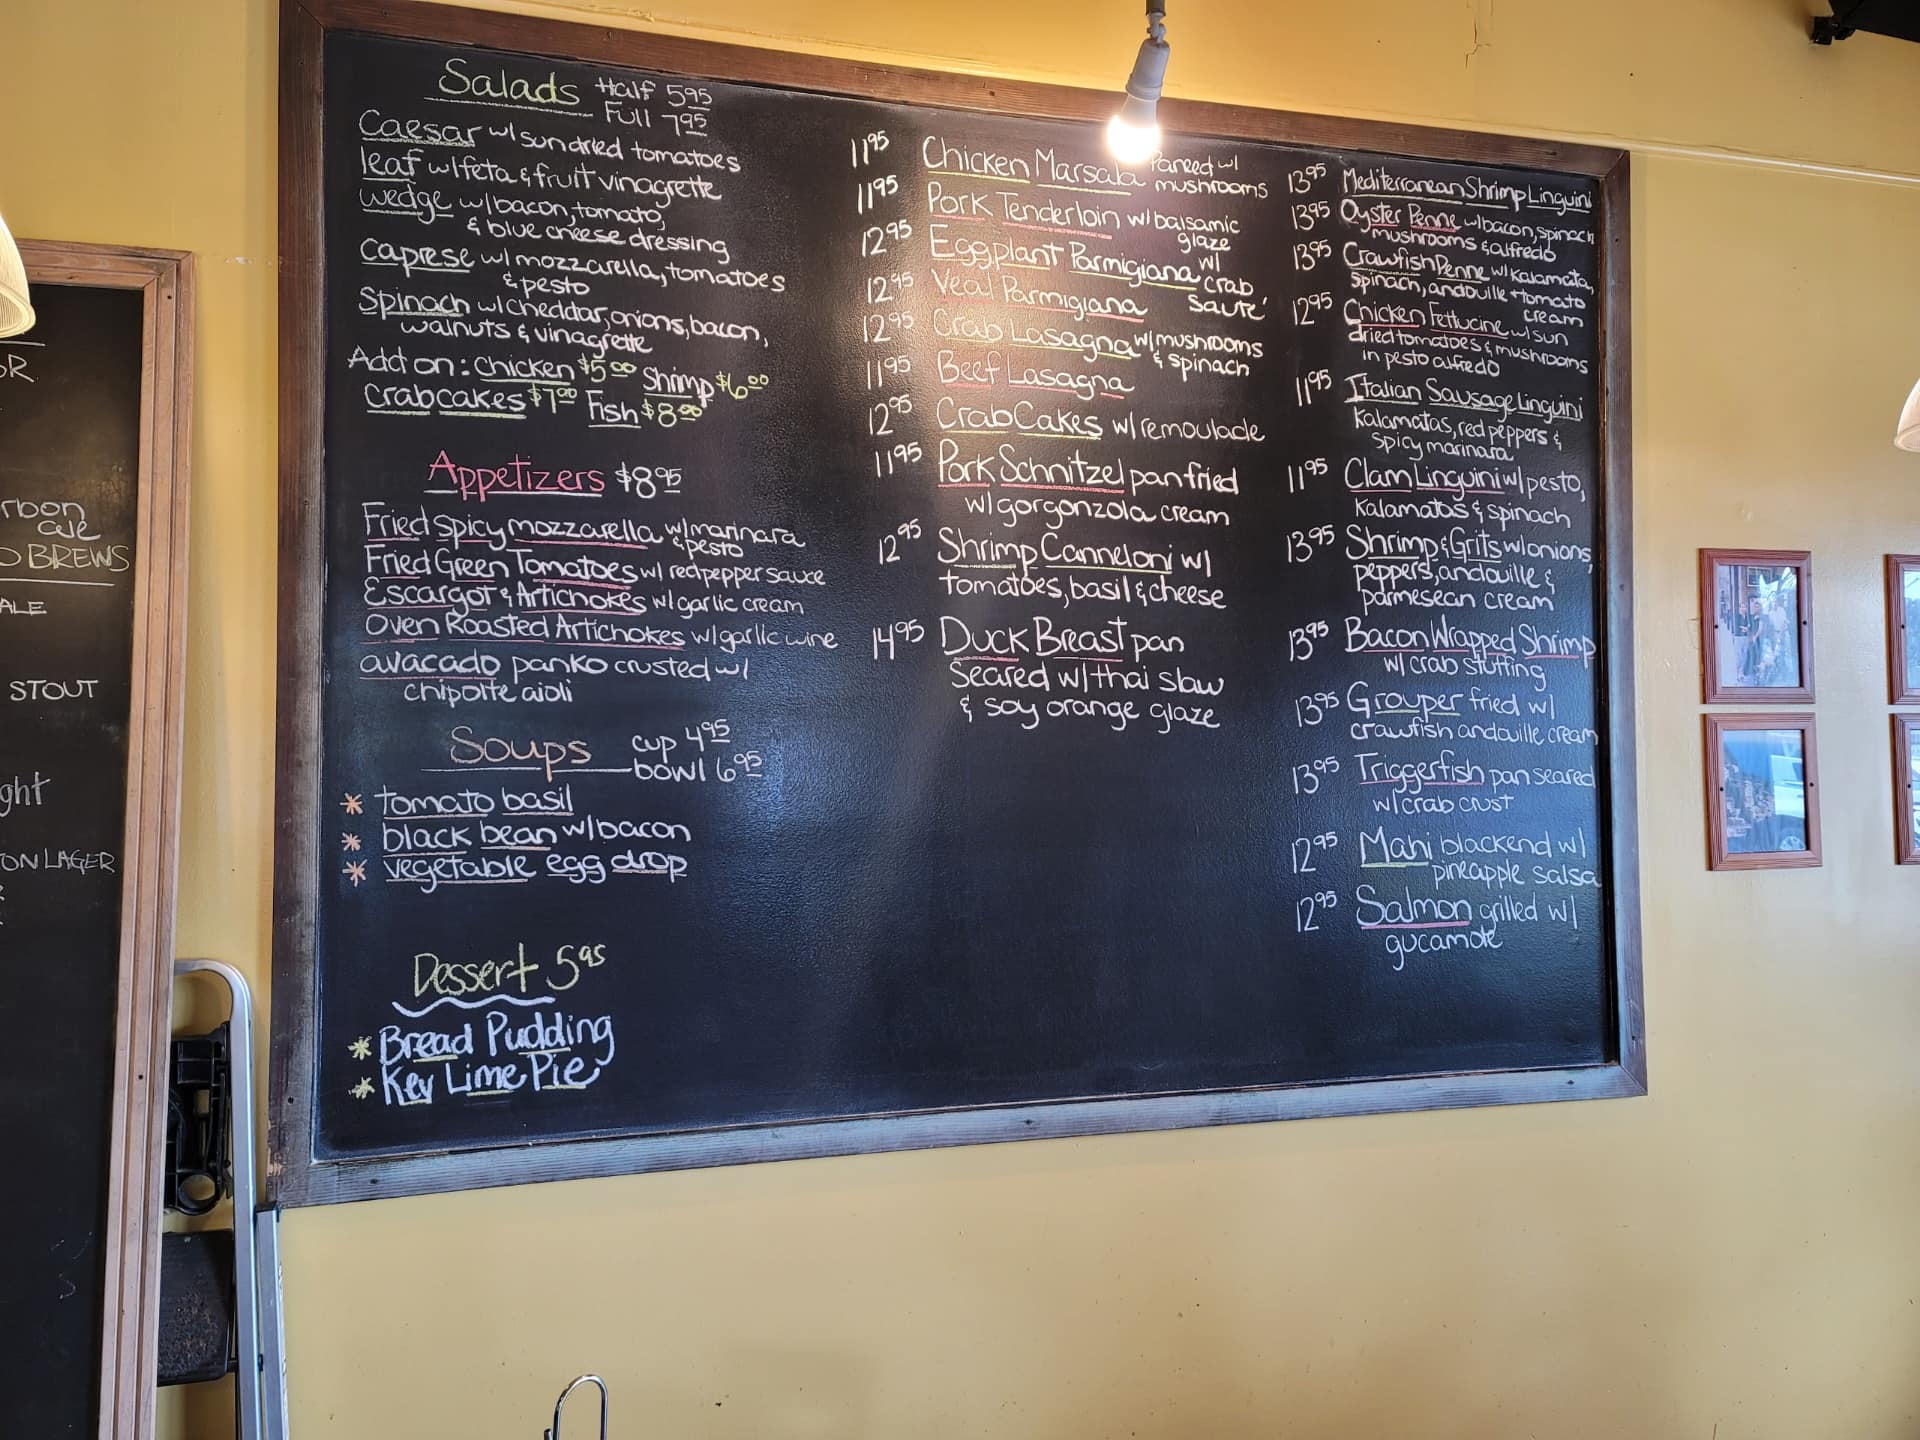 Salads Half 5.95
Full 7.95
Caesar w/ sundried tomatoes
leaf w/feta & fruit vinagrette
wedge w/bacon, tomato,
& blue cheese dressing
caprese w/ mozzarella, tomatoes
& pesto
Spinach w/cheddar, onions, bacon,
walnuts & vinagrette
Add on: chicken $5.00 Shrimp $6.00
crabcakes $7.00 Fish $8.00
Appetizers $8.95
Fried spicy mozzarella w/marinara
& pesto
Fried Green Tomatoes w/ red pepper sauce
Escargot & Artichokes w/ garlic cream
Oven Roasted Artichokes w/garlic wine
avacado panko crusted w/
chipolte aioli
Soups cup 4.95
bowl 6.95
* tomato basil
* black bean w/bacon
* vegetable egg drop
Dessert 5.95
* Bread Pudding
* Key Lime Pie
11.95 Chicken Marsala Paneed w/
mushrooms
11.95 Pork Tenderloin w/ balsamic
glaze
12.95 Eggplant Parmigiana w/
crab
sauté
12.95 Veal Parmigiana
12.95 Crab Lasagna w/mushrooms
& spinach
11.95 Beef Lasagna
12.95 Crab Cakes w/remoulade
11.95 Pork Schnitzel pan fried
w/ gorgonzola cream
12.95 Shrimp Canneloni w/
tomatoes, basil & cheese
14.95 Duck Breast pan
Seared w/thai slaw
& soy orange glaze
13.95 Mediterranean Shrimp Linguini
13.95 Oyster Penne w/bacon, spinach
mushrooms & alfredo
13.95 Crawfish Penne w/ kalamata,
spinach, andouille + tomato
cream
12.95 Chicken Fettucine w/ sun
dried tomatoes & mushrooms
in pesto alfredo
11.95 Italian Sausage Linguini
kalamatas, red peppers &
spicy marinara
11.95 Clam Linguini w/ pesto,
kalamatas & spinach
13.95 Shrimp & Grits w/onions,
peppers, andouille &
parmesean cream
13.95 Bacon Wrapped Shrimp
w/ crab stuffing
13.95 Grouper fried w/
crawfish andouille cream
13.95 Triggerfish pan seared
w/crab crust
12.95 Mahi blackend w/
pineapple salsa
12.95 Salmon grilled w/
gucamole
ale
BREWS
ALE
STOUT
ght
ON LAGER